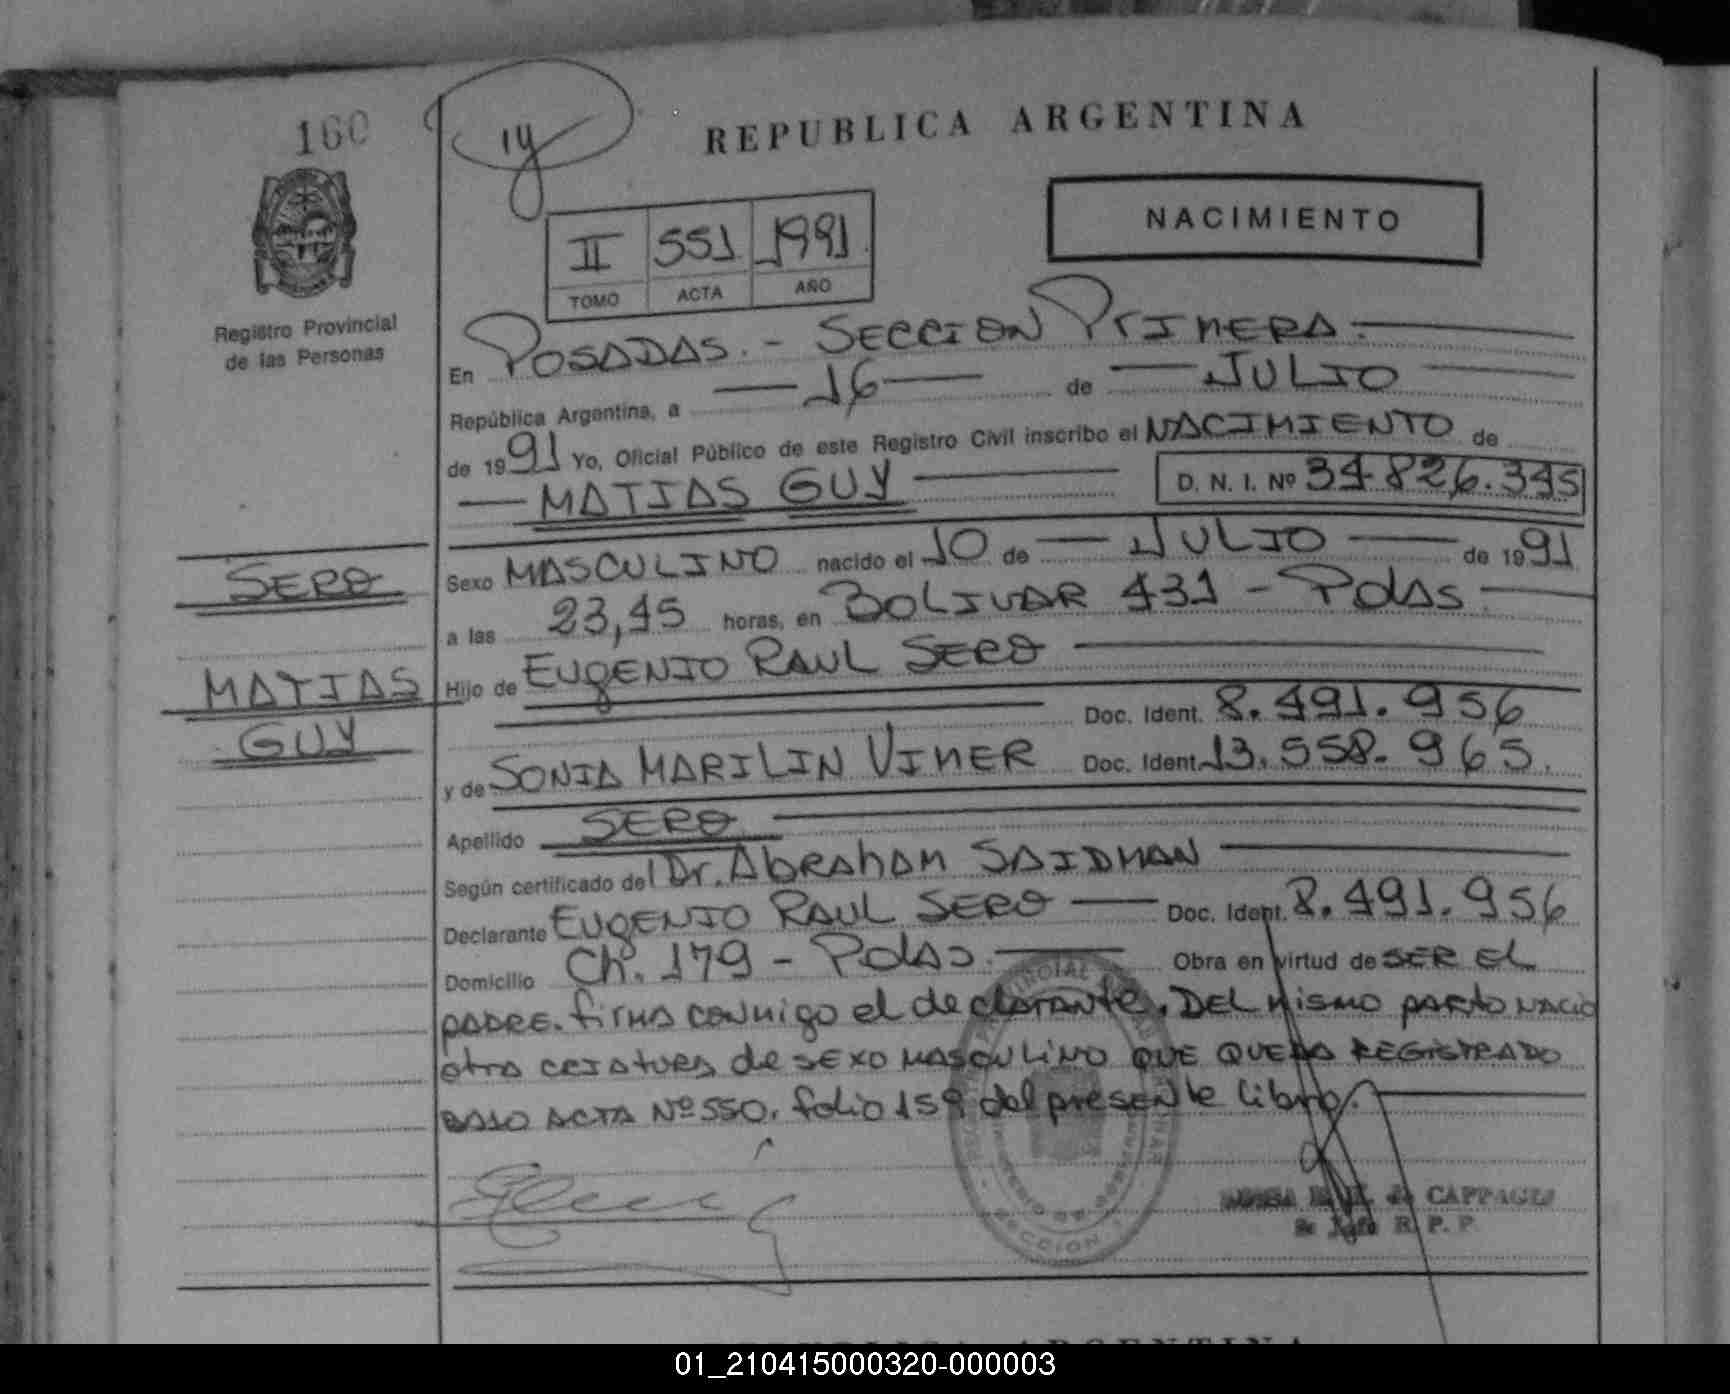 160
14
REPUBLICA ARGENTINA
II 551 1991
TOMO ACTA AÑO
NACIMIENTO
Registro Provincial
de las Personas
En POSADAS.- SECCION PRIMERA.
República Argentina, a 16 de JULIO
de 1991 Yo, Oficial Público de este Registro Civil inscribo el NACIMIENTO de
MATIAS GUY D. N. I. Nº 34.826.345
SERO
Sexo MASCULINO nacido el 10 de JULIO de 1991
a las 23,45 horas, en BOLIVAR 431 - Pdas
MATIAS
GUY
Hijo de EUgENIO RAUL SERO
Doc. Ident. 8.491.956
y de SONIA MARILIN VIMER Doc. Ident. 13.558.965.
Apellido SERO
Según certificado del Dr. AbRAhAM SAIDMAN
Declarante EUgENIO RAUL SERO Doc. Ident. 8.491.956
Domicilio Ch. 179 - Pdas. Obra en virtud de SER EL
PADRE. firma conmigo el declarante. DEL mismo parto NACIO
otra criatura de sexo MASCULINO QUE QUEDA REGISTRADO
BAJO ACTA Nº 550. folio 159 del presente libro.
de CAPPAGLI
R. P. P.
REPUBLICA ARGENTINA
01_210415000320-000003